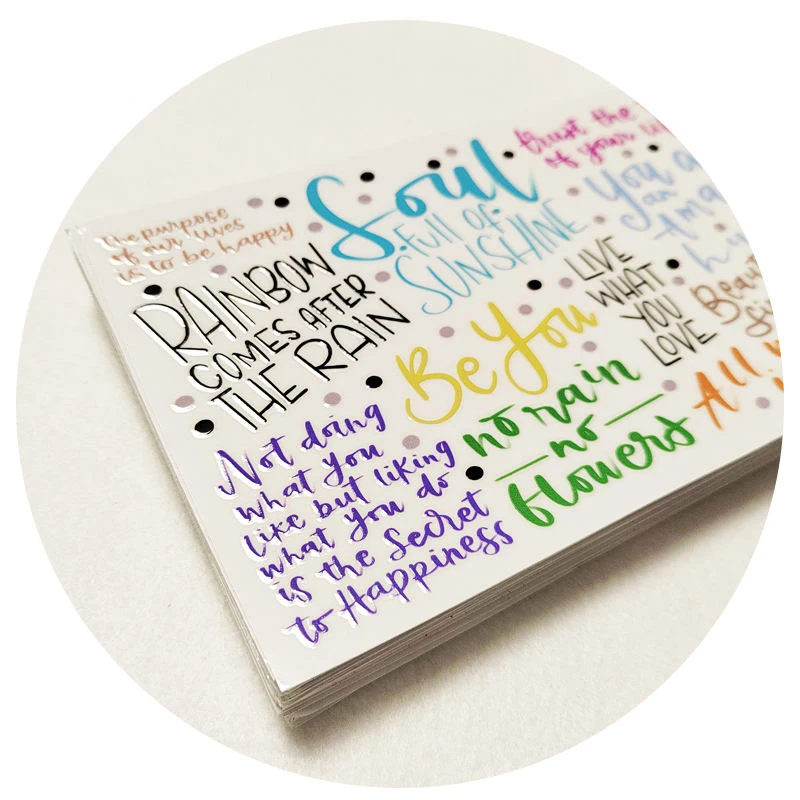 the purpose
of our lives
is to be happy
RAINBOW
COMES AFTER
THE RAIN
Soul
FULL OF
SUNSHINE
trust the
of your
You
an
LIVE
WHAT
YOU
LOVE
Be You
no rain
no
flowers
All
Not doing
what you
like but liking
what you do
is the Secret
to Happiness